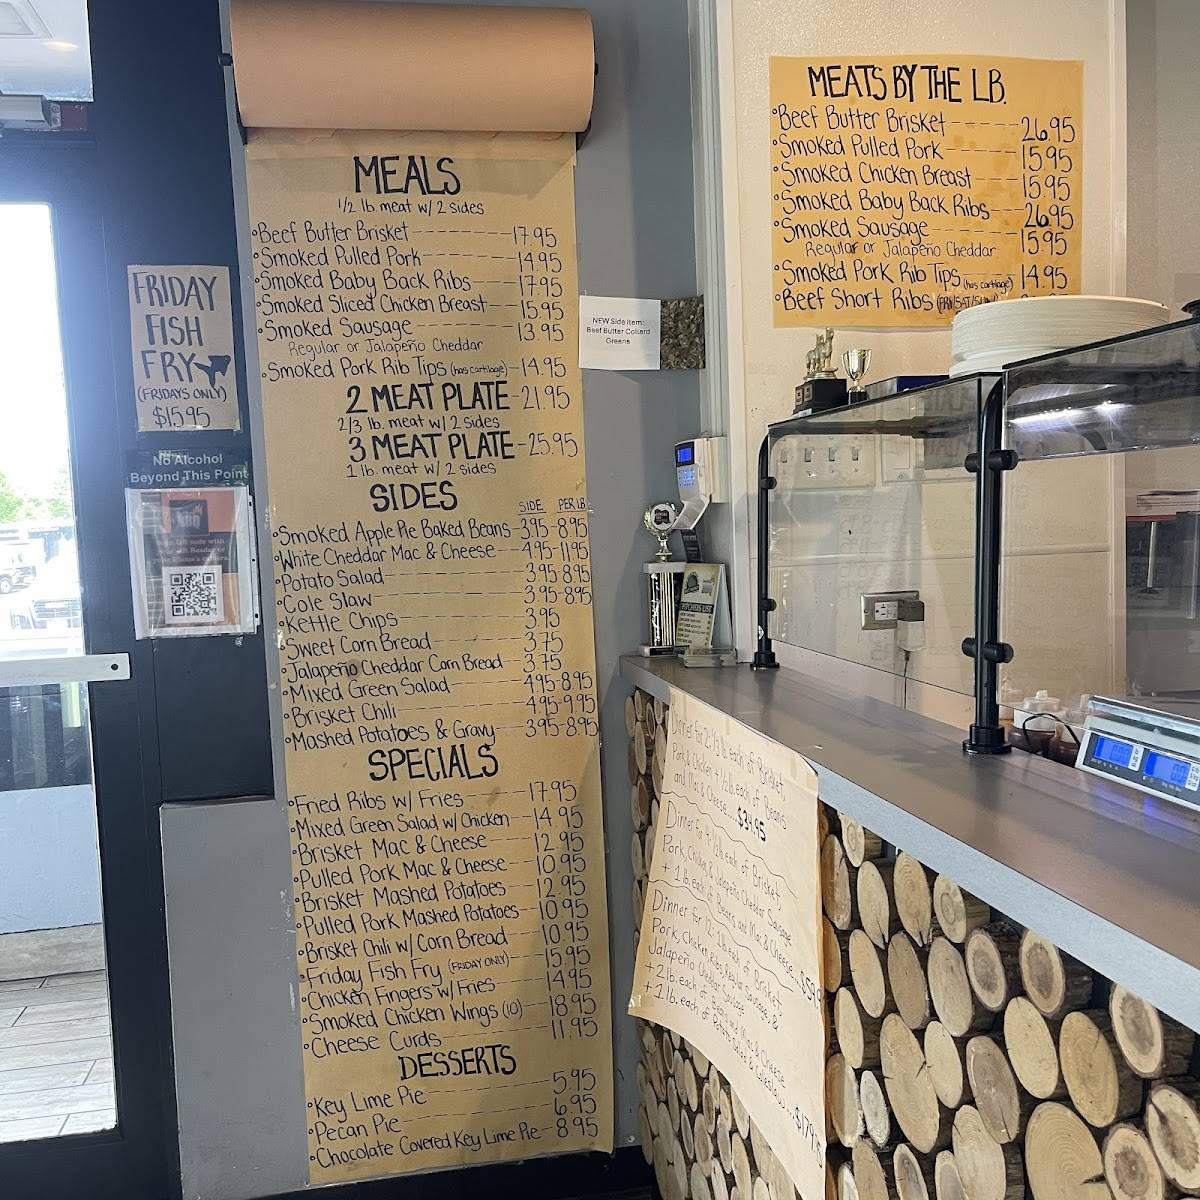 MEALS
1/2 lb. meat w/ 2 sides
•Beef Butter Brisket 17.95
•Smoked Pulled Pork 14.95
•Smoked Baby Back Ribs 17.95
•Smoked Sliced Chicken Breast 15.95
•Smoked Sausage 13.95
Regular or Jalapeño Cheddar
•Smoked Pork Rib Tips (has cartilage) 14.95
2 MEAT PLATE 21.95
2/3 lb. meat w/ 2 sides
3 MEAT PLATE 25.95
1 lb. meat w/ 2 sides
SIDES
SIDE PER LB
•Smoked Apple Pie Baked Beans 3.95-8.95
•White Cheddar Mac & Cheese 4.95-11.95
•Potato Salad 3.95-8.95
•Cole Slaw 3.95-8.95
•Kettle Chips 3.95
•Sweet Corn Bread 3.75
•Jalapeño Cheddar Corn Bread 3.75
•Mixed Green Salad 4.95-8.95
•Brisket Chili 4.95-9.95
•Mashed Potatoes & Gravy 3.95-8.95
SPECIALS
•Fried Ribs w/ Fries 17.95
•Mixed Green Salad w/ Chicken 14.95
•Brisket Mac & Cheese 12.95
•Pulled Pork Mac & Cheese 10.95
•Brisket Mashed Potatoes 12.95
•Pulled Pork Mashed Potatoes 10.95
•Brisket Chili w/ Corn Bread 10.95
•Friday Fish Fry (FRIDAY ONLY) 15.95
•Chicken Fingers w/ Fries 14.95
•Smoked Chicken Wings (10) 18.95
•Cheese Curds 11.95
DESSERTS
•Key Lime Pie 5.95
•Pecan Pie 6.95
•Chocolate Covered Key Lime Pie 8.95
FRIDAY
FISH
FRY
(FRIDAYS ONLY)
$15.95
No Alcohol
Beyond This Point
NEW Side Item:
Beef Butter Collard
Greens
MEATS BY THE LB.
•Beef Butter Brisket 26.95
•Smoked Pulled Pork 15.95
•Smoked Chicken Breast 15.95
•Smoked Baby Back Ribs 26.95
•Smoked Sausage 15.95
Regular or Jalapeño Cheddar
•Smoked Pork Rib Tips (has cartilage) 14.95
•Beef Short Ribs (FRI/SAT/SUN)
PITCHERS LIST
Dinner for 2: 1/3 lb. each of Brisket
Pork, & Chicken + 1/2 lb. each of Beans
and Mac & Cheese.... $34.95
Dinner for 4: 1/2 lb. each of Brisket,
Pork, Chicken, & Jalapeño Cheddar Sausage
+ 1 lb. each of Beans and Mac & Cheese...
Dinner for 12: 2 lb. each of Brisket,
Pork, Chicken, Ribs, Reg. Sausage, &
Jalapeño Cheddar Sausage
+ 2 lb. each of Beans and Mac & Cheese
+ 1 lb. each of Potato Salad & Coleslaw